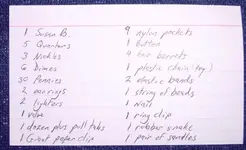 1 Susan B.
5 Quarters
3 Nickles
6 Dimes
30 Pennies
2 earrings
2 lighters
1
1 dozen plus pull tabs
1 Giant paper clip
9 nylon pockets
1 Button
9 hair barrets
1 plastic chain (toy)
2 elastic bands
1 string of beads
1 Nail
1 ring clip
1 rubber snake
1 pair of sandles